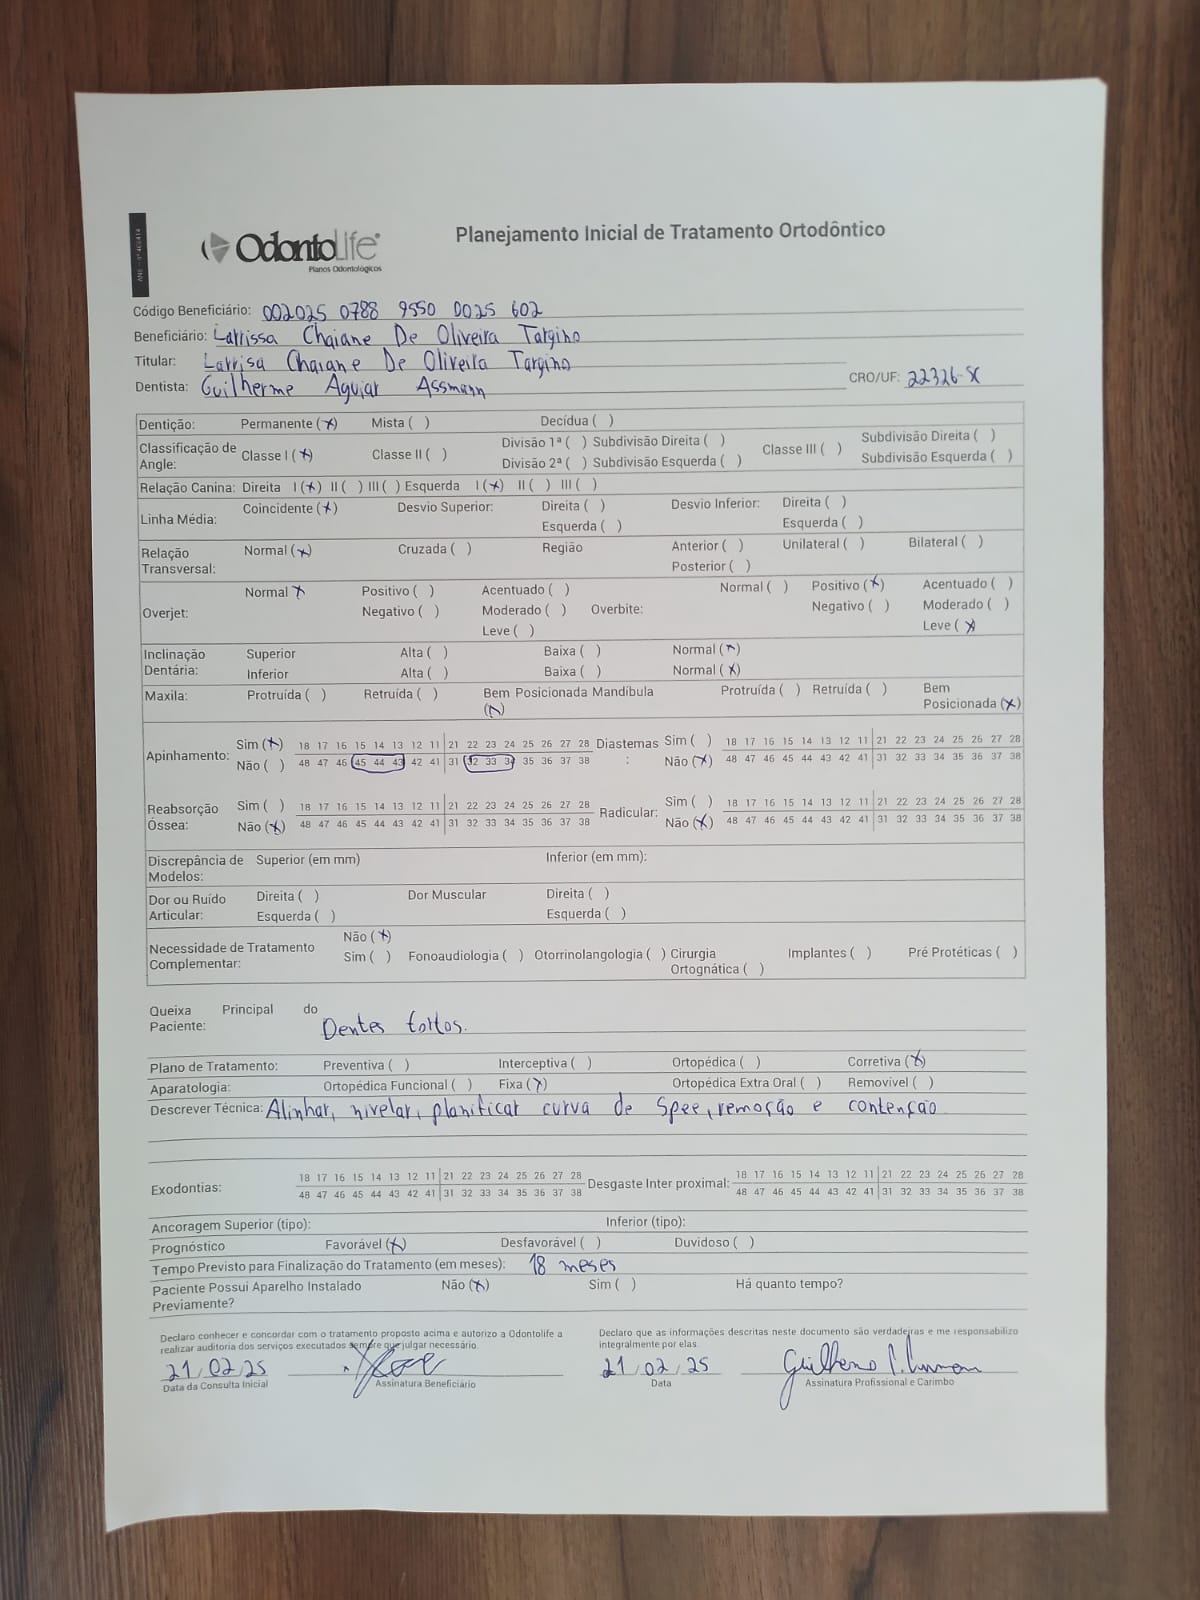 ANS - nº 402414
OdontoLife®
Planos Odontológicos
Planejamento Inicial de Tratamento Ortodôntico
Código Beneficiário: 002025 0788 9550 0025 602
Beneficiário: Larrissa Chaiane De Oliveira Targino
Titular: Larrisa Chaiane De Oliveira Targino
Dentista: Guilherme Aguiar Assmann CRO/UF: 22326-SC
Dentição: Permanente (x) Mista ( ) Decídua ( )
Classificação de Angle: Classe I (x) Classe II ( ) Divisão 1ª ( ) Subdivisão Direita ( ) Classe III ( ) Subdivisão Direita ( )
Divisão 2ª ( ) Subdivisão Esquerda ( ) Subdivisão Esquerda ( )
Relação Canina: Direita I (x) II ( ) III ( ) Esquerda I (x) II ( ) III ( )
Linha Média: Coincidente (x) Desvio Superior: Direita ( ) Desvio Inferior: Direita ( )
Esquerda ( ) Esquerda ( )
Relação Transversal: Normal (x) Cruzada ( ) Região Anterior ( ) Unilateral ( ) Bilateral ( )
Posterior ( )
Overjet: Normal x Positivo ( ) Acentuado ( ) Overbite: Normal ( ) Positivo (x) Acentuado ( )
Negativo ( ) Moderado ( ) Negativo ( ) Moderado ( )
Leve ( ) Leve (x)
Inclinação Dentária: Superior Alta ( ) Baixa ( ) Normal (x)
Inferior Alta ( ) Baixa ( ) Normal (x)
Maxila: Protruída ( ) Retruída ( ) Bem Posicionada (x) Mandíbula Protruída ( ) Retruída ( ) Bem Posicionada (x)
Apinhamento: Sim (x) 18 17 16 15 14 13 12 11 21 22 23 24 25 26 27 28 Diastemas: Sim ( ) 18 17 16 15 14 13 12 11 21 22 23 24 25 26 27 28
Não ( ) 48 47 46 45 44 43 42 41 31 32 33 34 35 36 37 38 Não (x) 48 47 46 45 44 43 42 41 31 32 33 34 35 36 37 38
Reabsorção Óssea: Sim ( ) 18 17 16 15 14 13 12 11 21 22 23 24 25 26 27 28 Radicular: Sim ( ) 18 17 16 15 14 13 12 11 21 22 23 24 25 26 27 28
Não (x) 48 47 46 45 44 43 42 41 31 32 33 34 35 36 37 38 Não (x) 48 47 46 45 44 43 42 41 31 32 33 34 35 36 37 38
Discrepância de Modelos: Superior (em mm) Inferior (em mm):
Dor ou Ruído Articular: Direita ( ) Dor Muscular Direita ( )
Esquerda ( ) Esquerda ( )
Necessidade de Tratamento Complementar: Não (x)
Sim ( ) Fonoaudiologia ( ) Otorrinolangologia ( ) Cirurgia Ortognática ( ) Implantes ( ) Pré Protéticas ( )
Queixa Principal do Paciente: Dentes tortos.
Plano de Tratamento: Preventiva ( ) Interceptiva ( ) Ortopédica ( ) Corretiva (x)
Aparatologia: Ortopédica Funcional ( ) Fixa (x) Ortopédica Extra Oral ( ) Removível ( )
Descrever Técnica: Alinhar, nivelar, planificar curva de Spee, remoção e contenção
Exodontias: 18 17 16 15 14 13 12 11 21 22 23 24 25 26 27 28 Desgaste Inter proximal: 18 17 16 15 14 13 12 11 21 22 23 24 25 26 27 28
48 47 46 45 44 43 42 41 31 32 33 34 35 36 37 38 48 47 46 45 44 43 42 41 31 32 33 34 35 36 37 38
Ancoragem Superior (tipo): Inferior (tipo):
Prognóstico Favorável (x) Desfavorável ( ) Duvidoso ( )
Tempo Previsto para Finalização do Tratamento (em meses): 18 meses
Paciente Possui Aparelho Instalado Previamente? Não (x) Sim ( ) Há quanto tempo?
Declaro conhecer e concordar com o tratamento proposto acima e autorizo a Odontolife a realizar auditoria dos serviços executados sempre que julgar necessário.
21/02/25
Data da Consulta Inicial Assinatura Beneficiário
Declaro que as informações descritas neste documento são verdadeiras e me responsabilizo integralmente por elas.
21/02/25
Data Assinatura Profissional e Carimbo